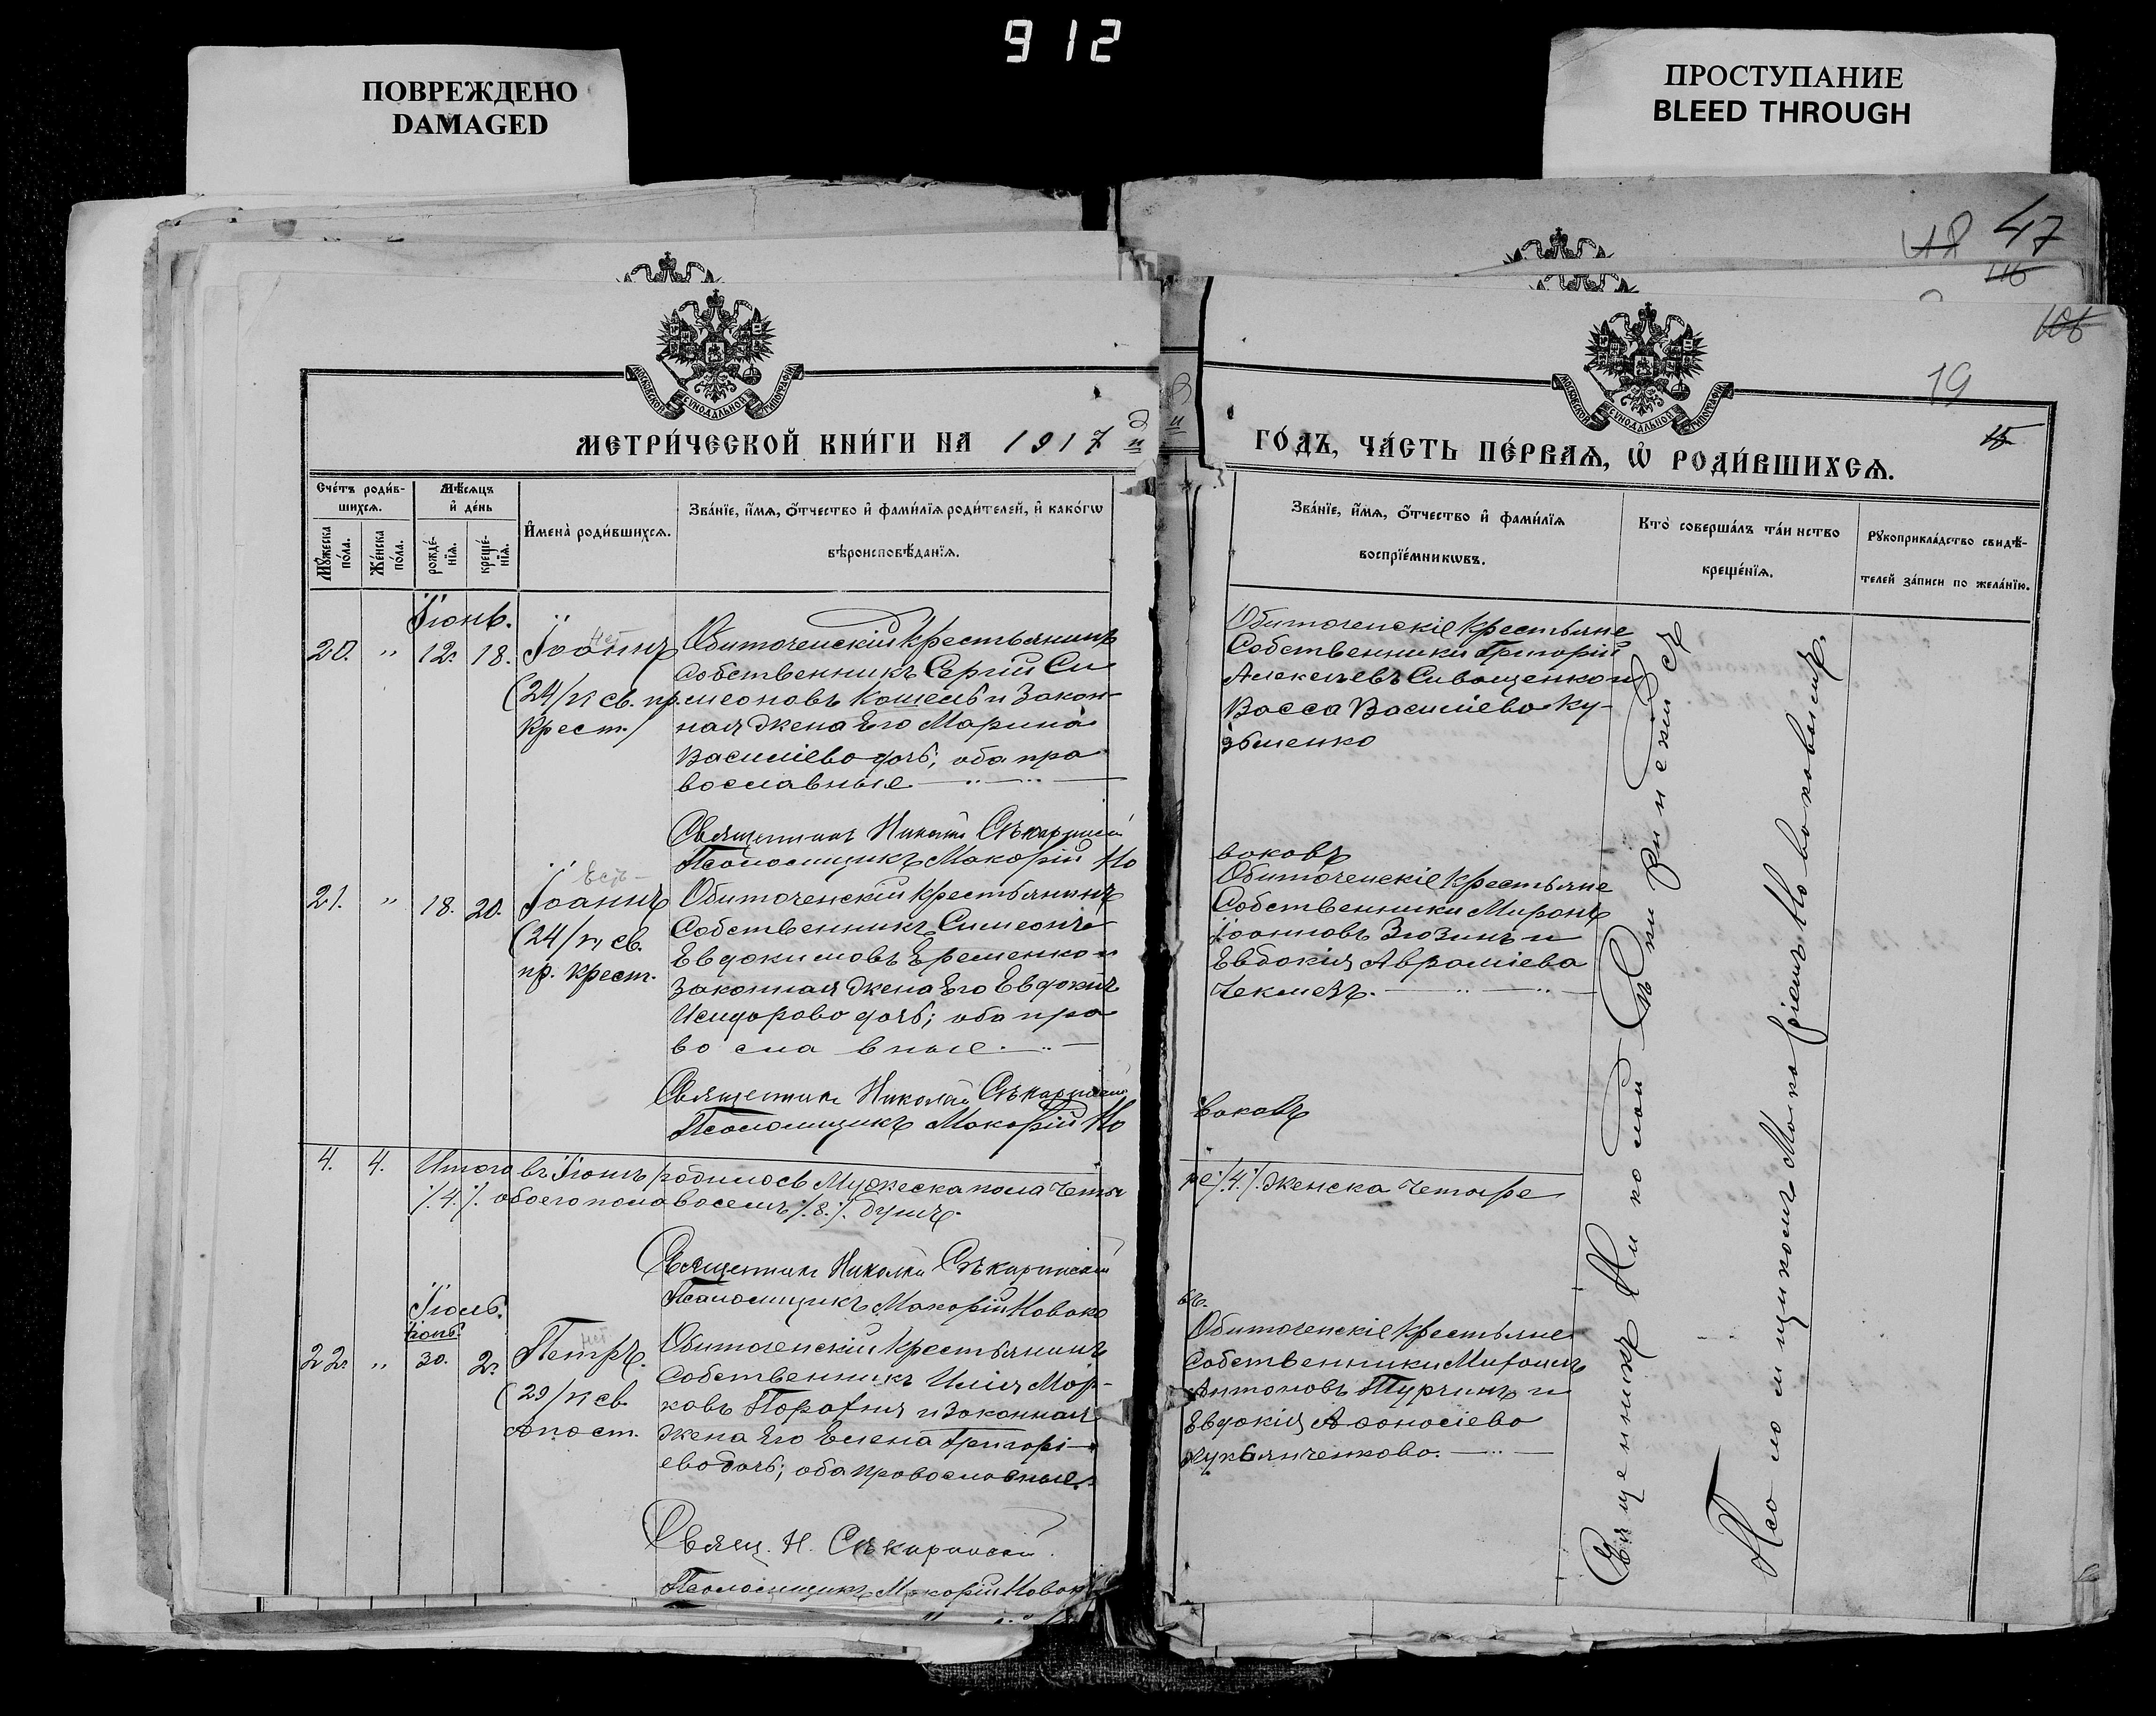 912
ПОВРЕЖДЕНО
DAMAGED
ПРОСТУПАНИЕ
BLEED THROUGH
47
19
МЕТРИ́ЧЕСКОЙ КНИ́ГИ НА 1917
ГО́ДЪ, ЧА́СТЬ ПЕ́РВАѦ, Ѡ҆ РОДИ́ВШИХСѦ.
Сче́тъ роди́в-
шихсѧ.
Мꙋ́жеска по́ла.
Же́нска по́ла.
Мѣ́сѧцъ и҆ де́нь
рожде́-нїѧ.
креще́-нїѧ.
И҆мена̀ роди́вшихсѧ.
Зва́нїе, и҆́мѧ, ѻ҆́тчество и҆ фами́лїѧ роди́телей, и҆ како́гѡ
вѣроисповѣ́данїѧ.
Зва́нїе, и҆́мѧ, ѻ҆́тчество и҆ фами́лїѧ
воспрїе́мникѡвъ.
Кто̀ соверша́лъ та́инство
креще́нїѧ.
Рꙋкоприкла́дство свидѣ́-
телей за́писи по жела́нїю.
Іюнь.
20. " 12. 18. Іоаннъ
нет
(24/VI св. пр.
Крест./
Обиточенскій крестьянинъ
собственникъ Сергій Си
меоновъ Кошель и закон-
ная жена его Марина
Василіева дочь; оба пра
вославные
Обиточенскіе крестьяне
Собственники Григорій
Алексѣевъ Сивощенко и
Васса Василіева Ку-
зьменко
Священникъ Николай Сѣкиринскій
Псаломщикъ Макарій Но
ваковъ
21. " 18. 20. Іоаннъ
Есть
(24/VI св.
пр. крест.
Обиточенскій крестьянинъ
Собственникъ Симеонъ
Евдокимовъ Еременко и
законная жена его Евдокія
Исидорова дочь; оба пра
во сла вные.
Обиточенскіе крестьяне
Собственники Миронъ
Іоанновъ Зюзинъ и
Евдокія Авраміева
Чекмезъ.
Священникъ Николай Сѣкиринскій
Псаломщикъ Макарій Но
ваковъ
4. 4. Итого въ Іюнѣ родилось Мужеска пола четы
ре /.4./. женска четыре
/.4./. обоего пола восемь /.8./. душъ.
Священникъ Николай Сѣкиринскій
Псаломщикъ Макарій Новако
въ.
Іюль.
Іюнь.
22. " 30. 2. Петръ.
нет
(29/VI св.
апост.
Обиточенскій крестьянинъ
Собственникъ Илія Мар-
ковъ Парафія и законная
жена его Елена Григорі-
ева дочь; оба православные.
Обиточенскіе крестьяне
Собственники
Антоновъ Турчинъ и
Евдокія Аѳонасіева
Лукьянченкова.
Свящ. Н. Сѣкиринскій.
Псаломщикъ Макарій Новак
Священникъ Николай Сѣкиринскій съ
Псаломщикомъ Макаріемъ Новаковымъ.